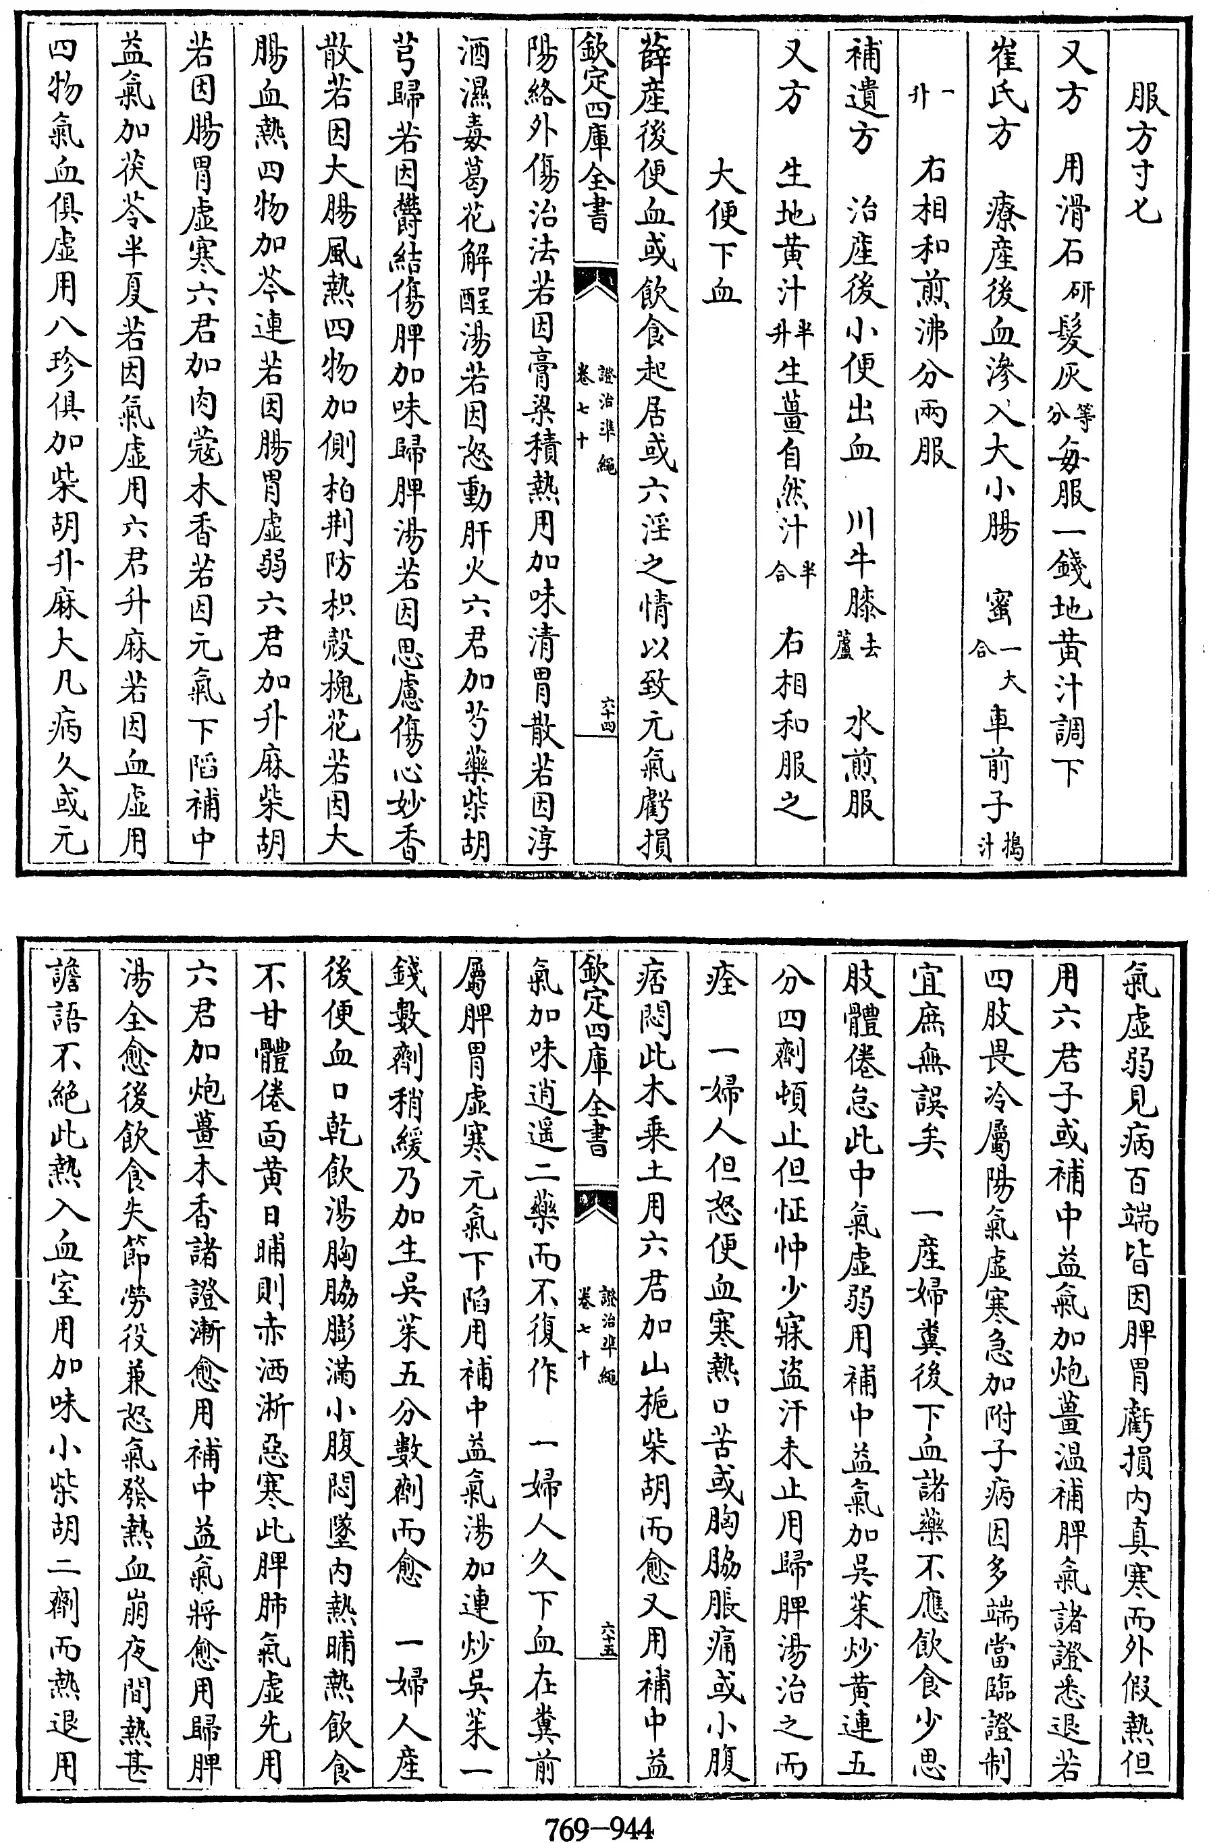 服方寸匕
又方　用滑石研髮灰等分每服一錢地黄汁調下
崔氏方　療產後血滲入大小腸　蜜一大合車前子搗汁
一升　右相和煎沸分兩服
補遺方　治產後小便出血　川牛膝去蘆　水煎服
又方　生地黄汁半升生薑自然汁半合　右相和服之
大便下血
薛產後便血或飲食起居或六淫之情以致元氣虧損
欽定四庫全書　證治準繩卷七十　六十四
陽絡外傷治法若因膏粱積熱用加味清胃散若因淳
酒濕毒葛花解酲湯若因怒動肝火六君加芍藥柴胡
芎歸若因鬱結傷脾加味歸脾湯若因思慮傷心妙香
散若因大腸風熱四物加側柏荆防枳殼槐花若因大
腸血熱四物加芩連若因腸胃虛弱六君加升麻柴胡
若因腸胃虛寒六君加肉蔻木香若因元氣下陷補中
益氣加茯苓半夏若因氣虛用六君升麻若因血虛用
四物氣血俱虛用八珍俱加柴胡升麻大凡病久或元
氣虛弱見病百端皆因脾胃虧損内真寒而外假熱但
用六君子或補中益氣加炮薑温補脾氣諸證悉退若
四肢畏冷屬陽氣虛寒急加附子病因多端當臨證制
宜庶無誤矣　一產婦糞後下血諸藥不應飲食少思
肢體倦怠此中氣虛弱用補中益氣加吳茱炒黄連五
分四劑頓止但怔忡少寐盜汗未止用歸脾湯治之而
痊　一婦人但怒便血寒熱口苦或胸脇脹痛或小腹
痞悶此木乗土用六君加山梔柴胡而愈又用補中益
欽定四庫全書　證治準繩卷七十　六十五
氣加味逍遥二藥而不復作　一婦人久下血在糞前
屬脾胃虛寒元氣下陷用補中益氣湯加連炒吳茱一
錢數劑稍緩乃加生吳茱五分數劑而愈　一婦人產
後便血口乾飲湯胸脇膨滿小腹悶墜内熱晡熱飲食
不甘體倦面黄日晡則赤洒淅惡寒此脾肺氣虛先用
六君加炮薑木香諸證漸愈用補中益氣將愈用歸脾
湯全愈後飲食失節勞役兼怒氣發熱血崩夜間熱甚
譫語不絶此熱入血室用加味小柴胡二劑而熱退用
769-944